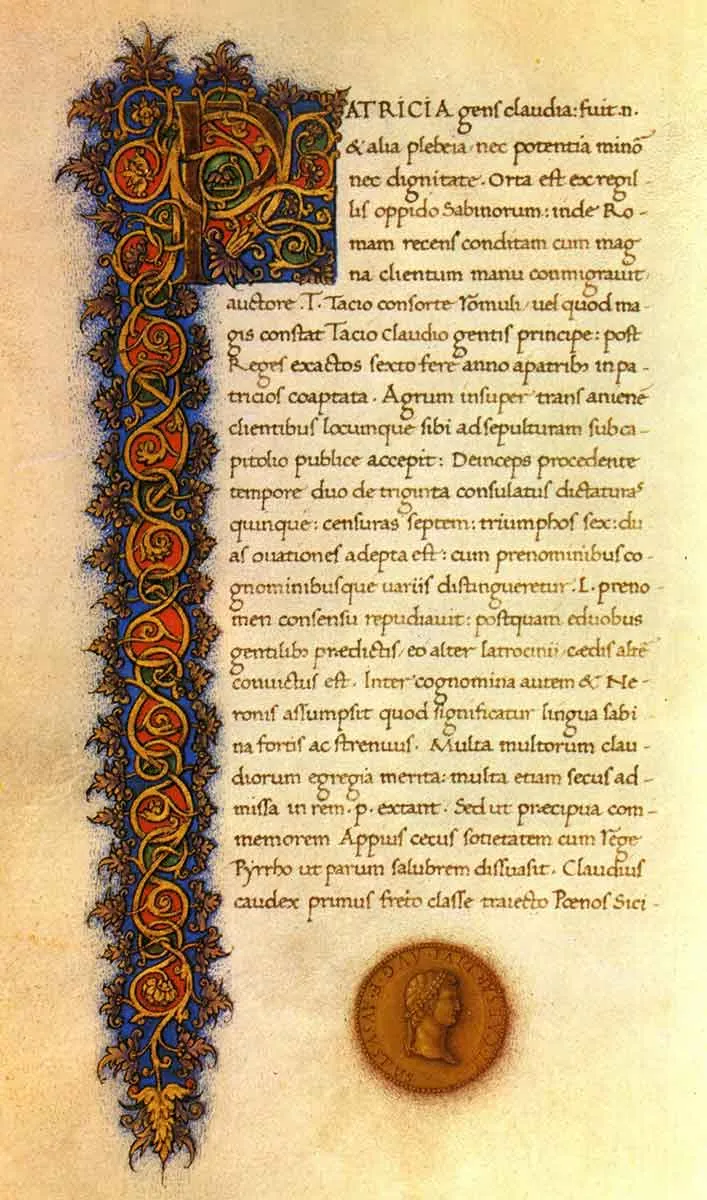 PATRICIA gens claudia: fuit .n.
& alia plebeia nec potentia minõ
nec dignitate. Orta est ex regil-
lis oppido Sabinorum: inde Ro-
mam recens conditam cum mag
na clientum manu conmigrauit
auctore .T. Tacio consorte romuli uel quod ma-
gis constat Tacio claudio gentis principe: post
Reges exactos sexto fere anno apatrib; in pa-
tricios coaptata. Agrum insuper trans anienẽ
clientibus locumque sibi ad sepulturam sub ca-
pitolio publice accepit: Deinceps procedente
tempore duo de triginta consulatus dictaturas
quinque: censuras septem: triumphos sex: du
as ouationes adepta est: cum prenominibus co-
gnominibusque uariis distingueretur .L. preno
men consensu repudiauit: postquam eduobus
gentilib; prædictis eo alter latrocinii cædis altẽ
conuictus est. Inter cognomina autem & Ne-
ronis assumpsit quod significatur lingua sabi
na fortis ac strenuus. Multa multorum clau-
diorum egregia merita: multa etiam secus ad-
missa in rem .p. extant. Sed ut præcipua com-
memorem Appius cecus societatem cum rege
Pyrrho ut parum salubrem dissuasit. Claudius
caudex primus freto classe traiecto Poenos Sici-